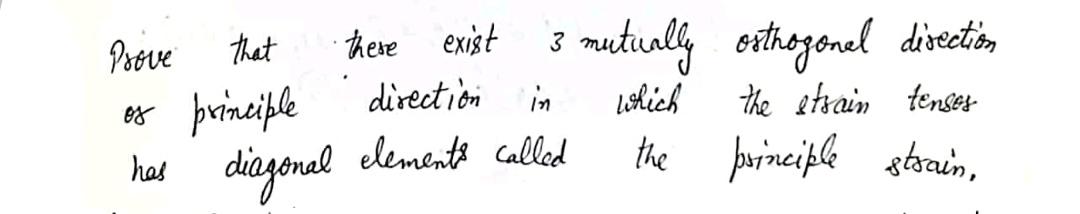 Prove that there exist 3 mutually orthogonal direction
or principle direction in which the strain tensor
has diagonal elements called the principle strain.